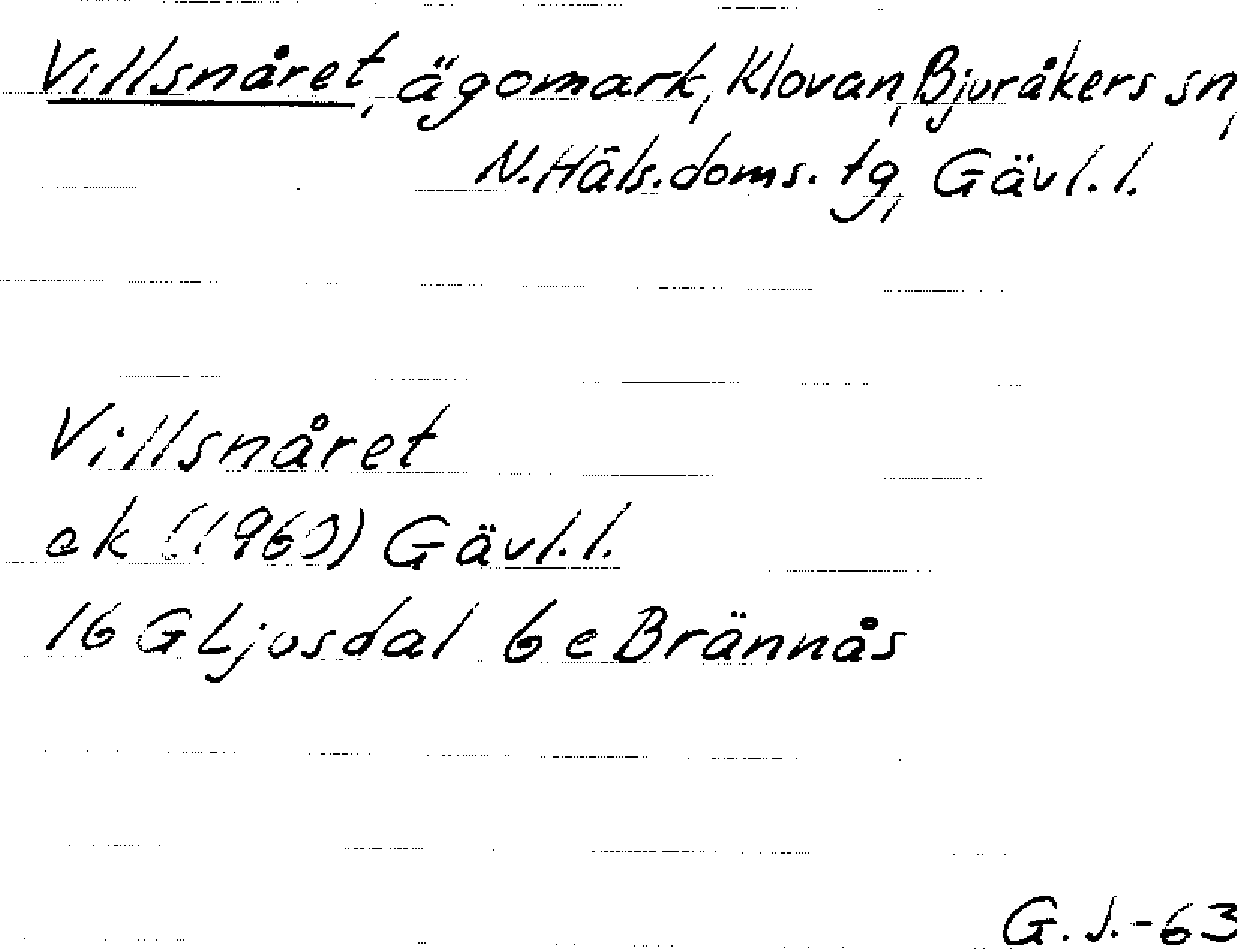 Villsnåret, ägomark, Klovan, Bjuråkers sn,
N. Häls. doms. tg, Gävl. l.
Villsnåret
ek (1960) Gävl. l.
16 G Ljusdal 6 e Brännås
G. J. -63